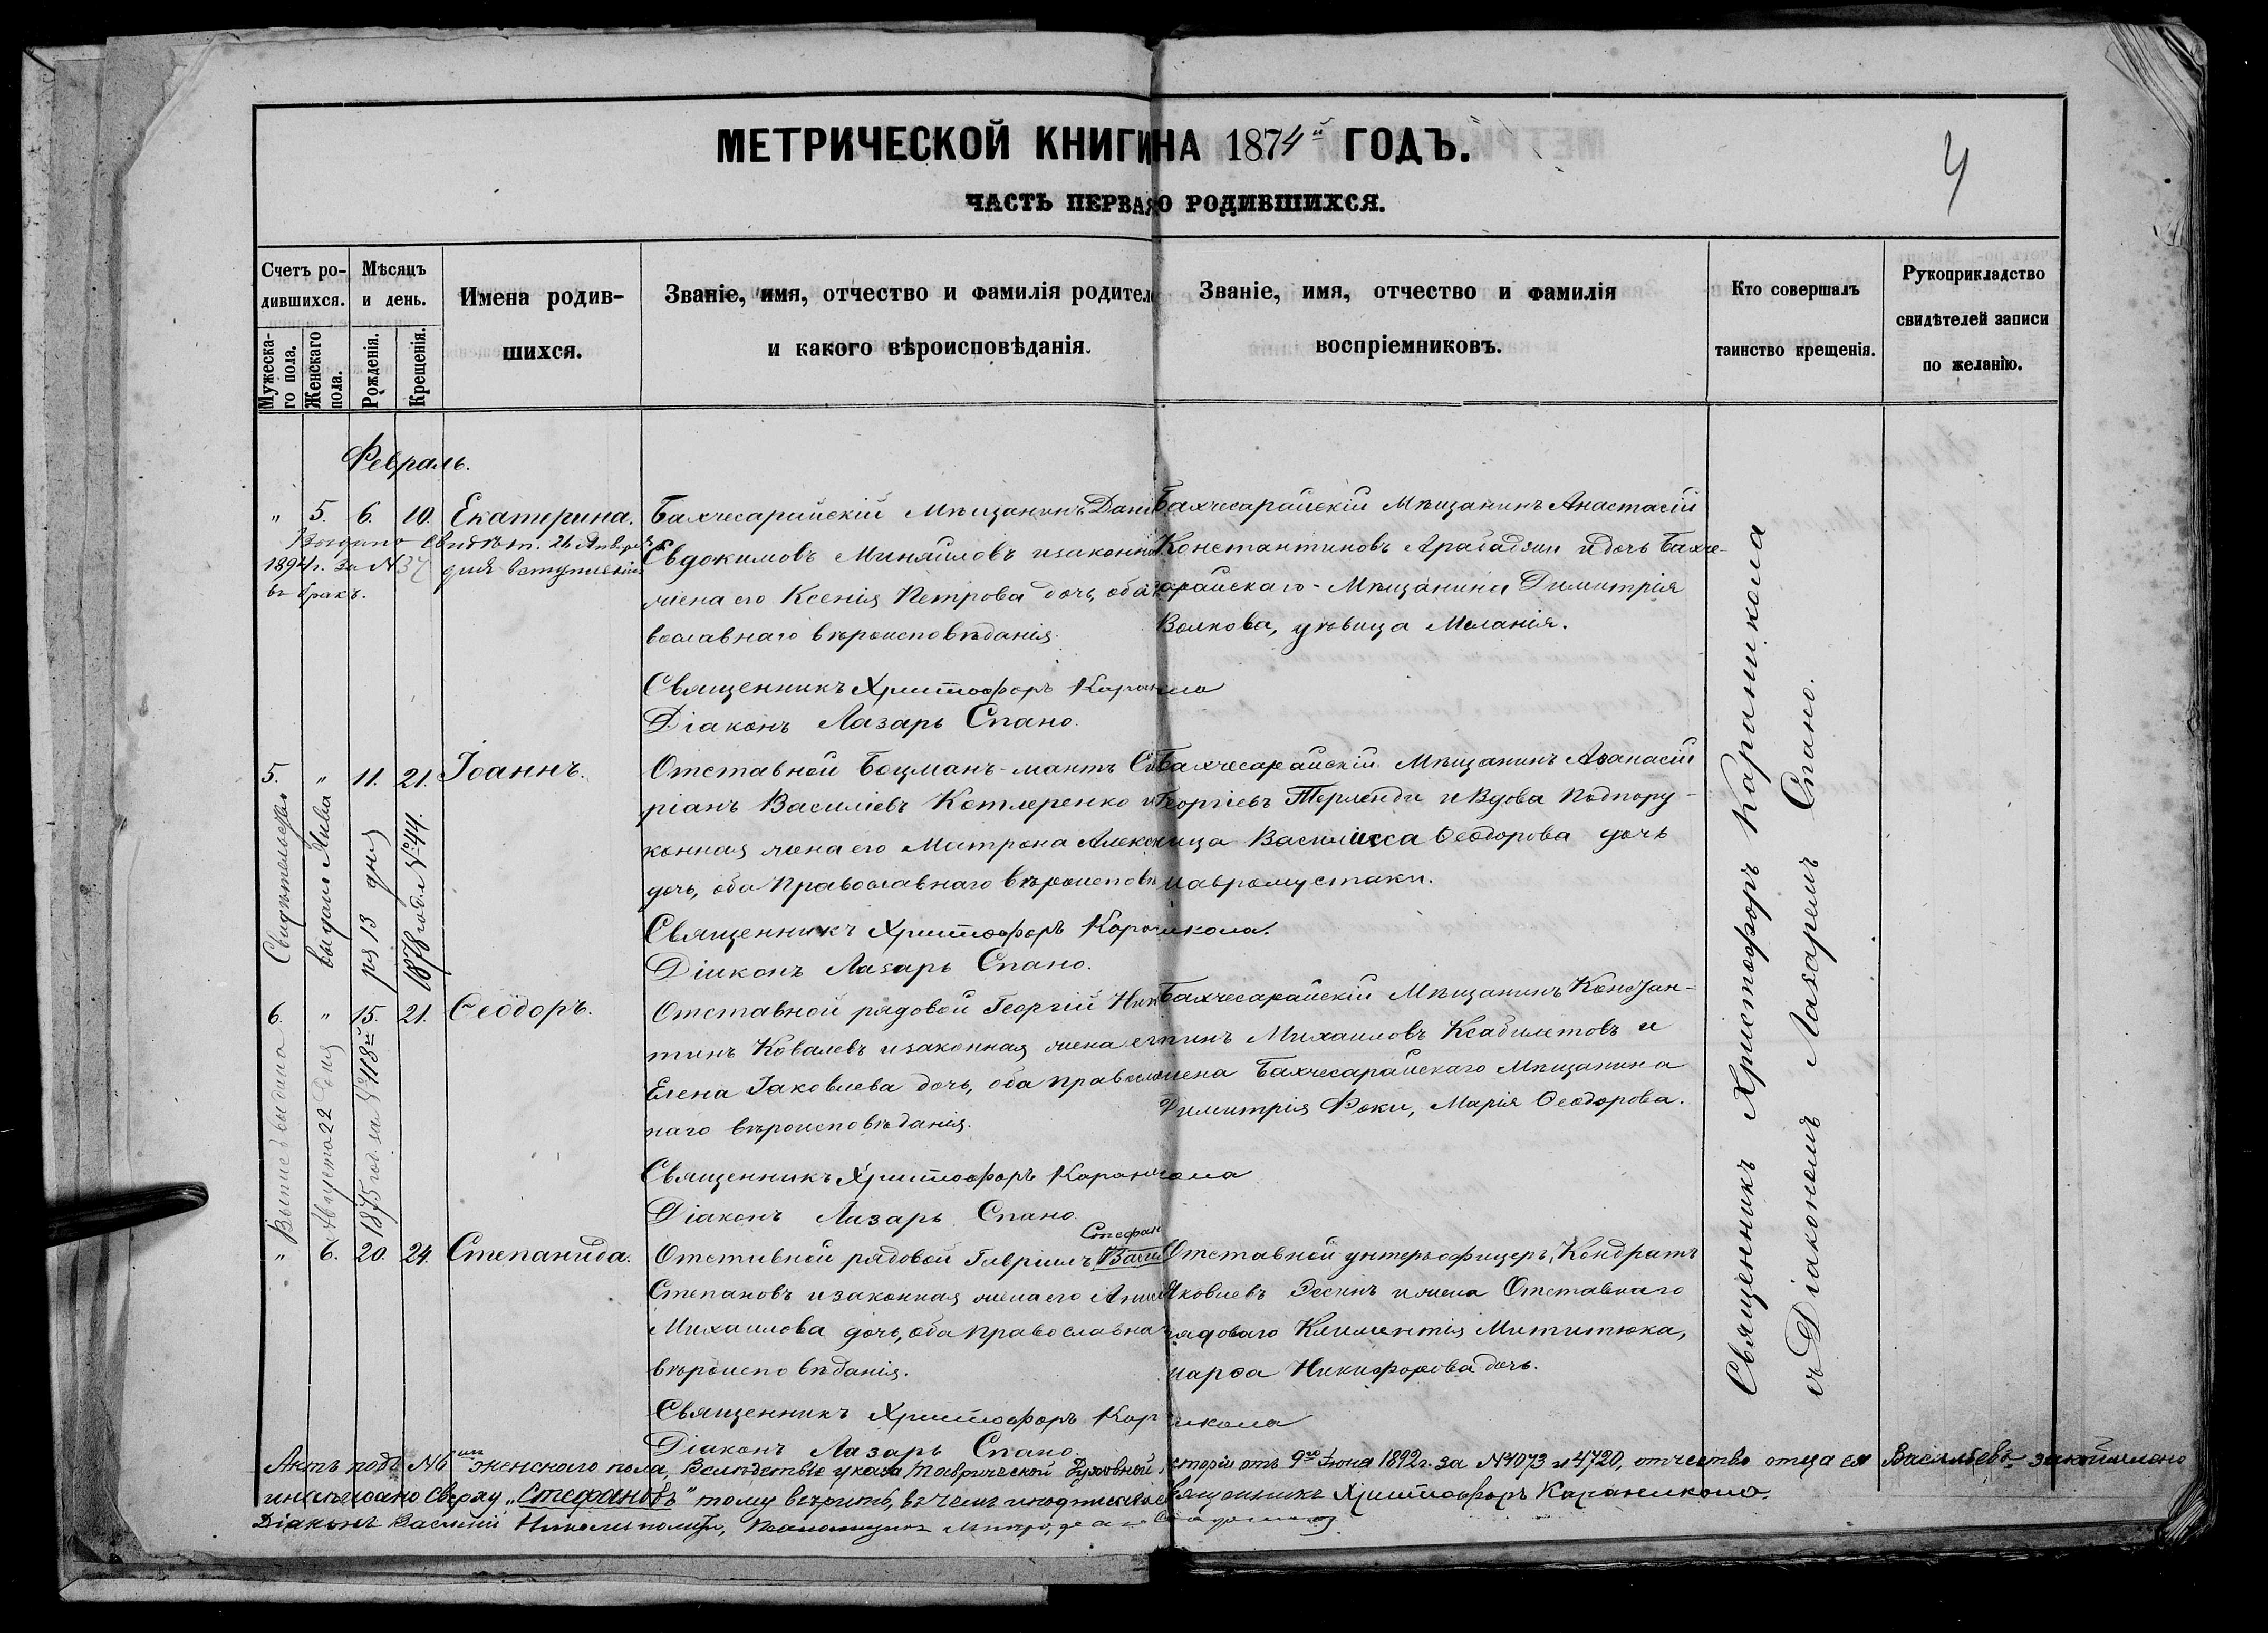 МЕТРИЧЕСКОЙ КНИГИ НА 1874й ГОДЪ.
4
ЧАСТЬ ПЕРВАЯ О РОДИВШИХСЯ.
Счетъ родившихся.
Мужеска-
го пола.
Женскаго
пола.
Мѣсяцъ
и день.
Рожденія.
Крещенія.
Имена родив-
шихся.
Званіе, имя, отчество и фамилія родител
и какого вѣроисповѣданія.
Званіе, имя, отчество и фамилія
воспріемниковъ.
Кто совершалъ
таинство крещенія.
Рукоприкладство
свидѣтелей записи
по желанію.
Февраль.
" 5. 6. 10. Екатерина.
Выдано свидѣт. 26 Января
1894 г. за № 37 для вступленія
въ бракъ.
Бахчесарайскій Мѣщанинъ Дани
Евдокимовъ Минаиловъ и законн
жена его Ксенія Петрова дочь, оба
вославнаго вѣроисповѣданія.
Священникъ Христофоръ Каран
Діаконъ Лазарь Спано.
Бахчесарайскій Мѣщанинъ Анастасій
Константиновъ Арабаджи и дочь Бахче-
сарайскаго Мѣщанина Димитрія
Волкова, дѣвица Меланія.
5. " 11. 21. Іоаннъ.
Свидѣтельство
выдано
1878 год. № 44.
Отставной Боцманъ-матъ Си
ріанъ Василіевъ Котлеренко и
конная жена его Матрона Алекс
дочь, оба Православнаго вѣроисповѣ
Священникъ Христофоръ Караникола.
Діаконъ Лазарь Спано.
Бахчесарайскій Мѣщанинъ Аѳанасій
Георгіевъ Терленди и Вдова Подпору-
чица Василисса Ѳеодорова дочь
Мавромустаки.
6. " 15. 21. Ѳеодоръ.
Выпись выдана
Августа 22 дня
1875 год. за № 118й
Отставной рядовой Георгій Ник
тинъ Ковалевъ и законная жена ег
Елена Іаковлева дочь, оба правосла
наго вѣроисповѣданія.
Священникъ Христофоръ Караникола
Діаконъ Лазарь Спано.
Бахчесарайскій Мѣщанинъ Констан-
тинъ Михаиловъ Ксабилетовъ и
жена Бахчесарайскаго Мѣщанина
Димитрія Фоки, Марія Ѳеодорова.
" 6. 20. 24. Степанида.
Стефан
Отставной рядовой Гавріилъ Васил
Степановъ и законная жена его Анна
Михаилова дочь, оба православна
вѣроисповѣданія.
Священникъ Христофоръ Кар никола
Діаконъ Лазарь Спано.
Отставной унтеръ офицеръ, Кондратъ
Яковлевъ Эсекъ и жена Отставнаго
рядоваго Климентія Мититюка,
Марѳа Никифорова дочь.
Священникъ Христофоръ Караникола
съ Діакономъ Лазаремъ Спано.
Актъ подъ №6мъ женскаго пола, Вслѣдствіе указа Таврической Духовной систоріи отъ 9го Іюня 1892 г. за №4073 и 4720, отчество отца ея Васильевъ
и написано сверху „Стефановъ" тому вѣрить, въ чемъ и подписа Священникъ Христофоръ Караникола.
Діаконъ Василій